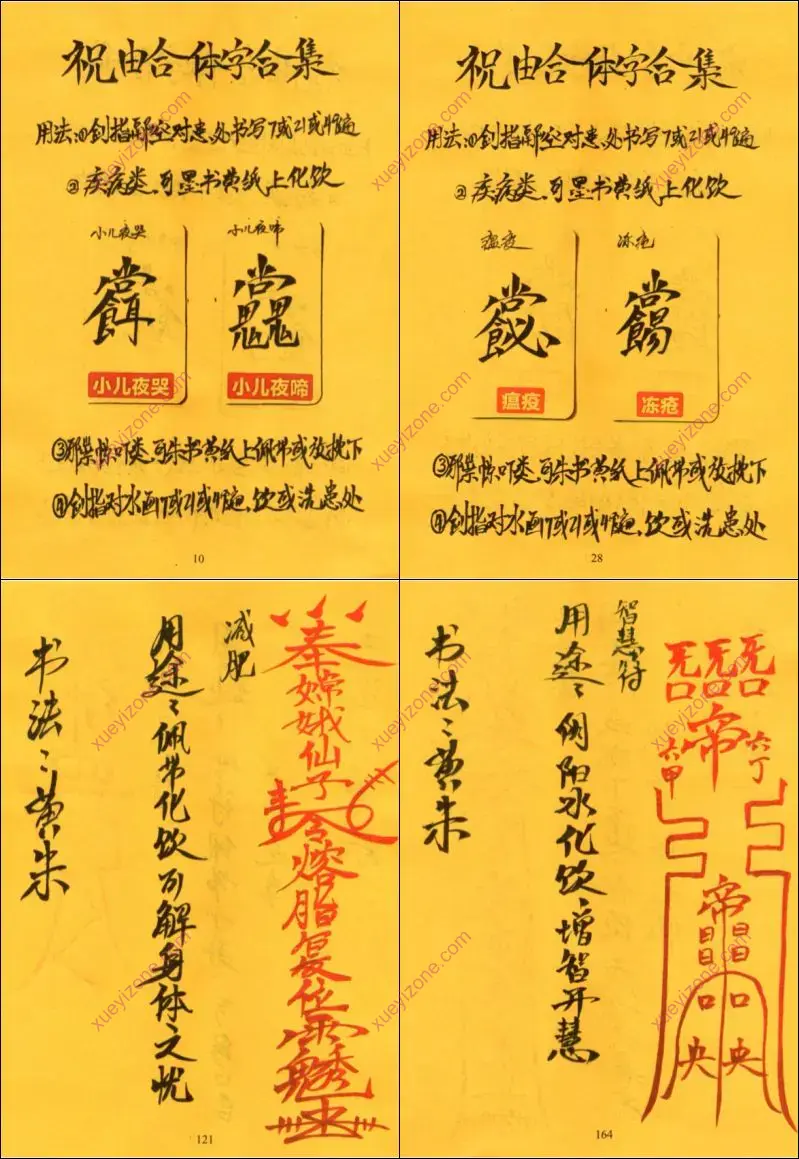 祝由合体字合集
用法:①剑指鄢空对患处书写7或21或49遍
②疾病类、可墨书黄纸上化饮
小儿夜哭
小儿夜啼
小儿夜哭
小儿夜啼
③邪祟惊吓类、可朱书黄纸上佩带或放枕下
④剑指对水画7或21或49遍、饮或洗患处
10
祝由合体字合集
用法:①剑指鄢空对患处书写7或21或49遍
②疾病类、可墨书黄纸上化饮
瘟疫
冻疮
瘟疫
冻疮
③邪祟惊吓类、可朱书黄纸上佩带或放枕下
④剑指对水画7或21或49遍、饮或洗患处
28
奉嫦娥仙子令熔脂复位
减肥
用途:佩带化饮可解身体之忧
书法:黄朱
121
智慧符
帝
六甲
六丁
帝
日昌
日昌
口口
央央
用途:阴阳水化饮、增智开慧
书法:黄朱
164
xueyizone.com
xueyizone.com
xueyizone.com
xueyizone.com
xueyizone.com
xueyizone.com
xueyizone.com
xueyizone.com